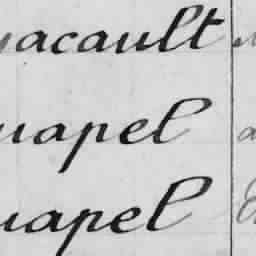 acault
uapel
uapel